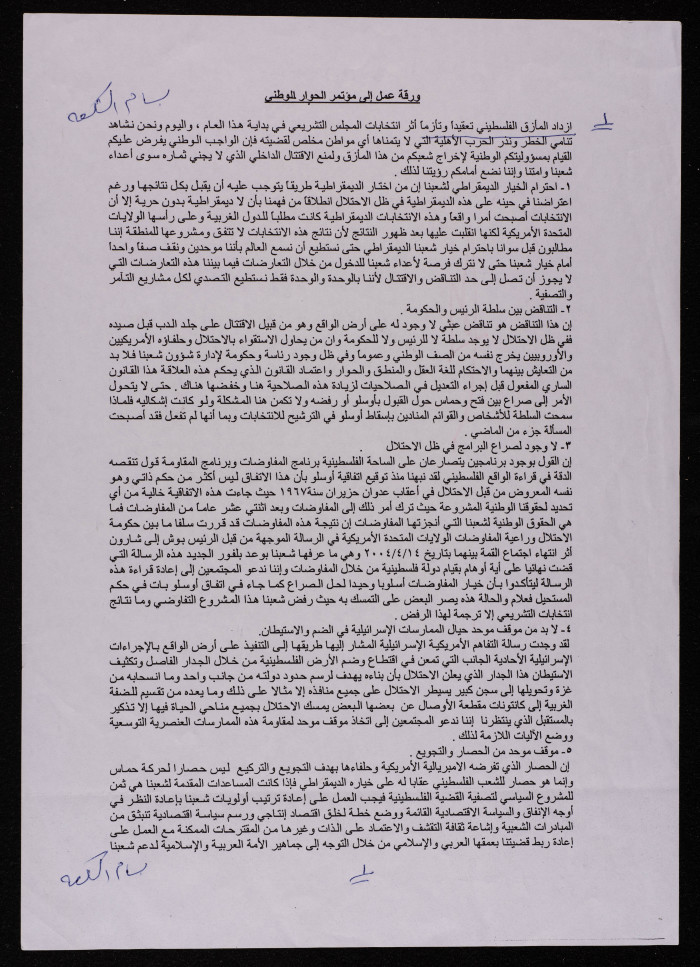 ورقة عمل إلى مؤتمر الحوار الوطني
بسام الشكعة
ازداد المأزق الفلسطيني تعقيداً وتأزماً أثر انتخابات المجلس التشريعي في بداية هذا العام ، واليوم ونحن نشاهد
تنامي الخطر ونذر الحرب الأهلية التي لا يتمناها أي مواطن مخلص لقضيته فإن الواجب الوطني يفرض عليكم
القيام بمسؤوليتكم الوطنية لإخراج شعبكم من هذا المأزق ولمنع الاقتتال الداخلي الذي لا يجني ثماره سوى أعداء
شعبنا وامتنا وإننا نضع أمامكم رؤيتنا لذلك .
١- احترام الخيار الديمقراطي لشعبنا إن من اختار الديمقراطية طريقاً يتوجب عليه أن يقبل بكل نتائجها ورغم
اعتراضنا في حينه على هذه الديمقراطية في ظل الاحتلال انطلاقاً من فهمنا بأن لا ديمقراطية بدون حرية إلا أن
الانتخابات أصبحت أمرا واقعاً وهذه الانتخابات الديمقراطية كانت مطلباً للدول الغربية وعلى رأسها الولايات
المتحدة الأمريكية لكنها انقلبت عليها بعد ظهور النتائج لأن نتائج هذه الانتخابات لا تتفق ومشروعها للمنطقة إننا
مطالبون قبل سوانا باحترام خيار شعبنا الديمقراطي حتى نستطيع أن نسمع العالم بأننا موحدين ونقف صفاً واحداً
أمام خيار شعبنا حتى لا نترك فرصة لأعداء شعبنا للدخول من خلال التعارضات فيما بيننا هذه التعارضات التي
لا يجوز أن تصل إلى حد التناقض والاقتتال لأننا بالوحدة والوحدة فقط نستطيع التصدي لكل مشاريع التآمر
والتصفية .
٢- التناقض بين سلطة الرئيس والحكومة .
إن هذا التناقض هو تناقض عبثي لا وجود له على أرض الواقع وهو من قبيل الاقتتال على جلد الدب قبل صيده
ففي ظل الاحتلال لا يوجد سلطة لا للرئيس ولا للحكومة وان من يحاول الاستقواء بالاحتلال وحلفاؤه الأمريكيين
والأوروبيين يخرج نفسه من الصف الوطني وعموماً وفي ظل وجود رئاسة وحكومة لإدارة شؤون شعبنا فلا بد
من التعايش بينهما والاحتكام للغة العقل والمنطق والحوار واعتماد القانون الذي يحكم هذه العلاقة هذا القانون
الساري المفعول قبل إجراء التعديل في الصلاحيات لزيادة هذه الصلاحية هنا وخفضها هناك . حتى لا يتحول
الأمر إلى صراع بين فتح وحماس حول القبول بأوسلو أو رفضه ولا تكمن هنا المشكلة ولو كانت إشكاليه فلماذا
سمحت السلطة للأشخاص والقوائم المنادين بإسقاط أوسلو في الترشيح للانتخابات وبما أنها لم تفعل فقد أصبحت
المسألة جزء من الماضي .
٣- لا وجود لصراع البرامج في ظل الاحتلال .
إن القول بوجود برنامجين يتصارعان على الساحة الفلسطينية برنامج المفاوضات وبرنامج المقاومة قول تنقصه
الدقة في قراءة الواقع الفلسطيني لقد نبهنا منذ توقيع اتفاقية أوسلو بأن هذا الاتفاق ليس أكثر من حكم ذاتي وهو
نفسه المعروض من قبل الاحتلال في أعقاب عدوان حزيران سنة ١٩٦٧ حيث جاءت هذه الاتفاقية خالية من أي
تحديد لحقوقنا الوطنية المشروعة حيث ترك أمر ذلك إلى المفاوضات وبعد اثنتي عشر عاماً من المفاوضات فما
هي الحقوق الوطنية لشعبنا التي أنجزتها المفاوضات إن نتيجة هذه المفاوضات قد قررت سلفا ما بين حكومة
الاحتلال وراعية المفاوضات الولايات المتحدة الأمريكية في الرسالة الموجهة من قبل الرئيس بوش إلى شارون
أثر انتهاء اجتماع القمة بينهما بتاريخ ٢٠٠٤/٤/١٤ وهي ما عرفها شعبنا بوعد بلفور الجديد هذه الرسالة التي
قضت نهائيا على أية أوهام بقيام دولة فلسطينية من خلال المفاوضات وإننا ندعو المجتمعين إلى إعادة قراءة هذه
الرسالة ليتأكدوا بأن خيار المفاوضات أسلوبا وحيدا لحل الصراع كما جاء في اتفاق أوسلو بات في حكم
المستحيل فعلام والحالة هذه يصر البعض على التمسك به حيث رفض شعبنا هذا المشروع التفاوضي وما نتائج
انتخابات التشريعي إلا ترجمة لهذا الرفض .
٤- لا بد من موقف موحد حيال الممارسات الإسرائيلية في الضم والاستيطان.
لقد وجدت رسالة التفاهم الأمريكية الإسرائيلية المشار إليها طريقها إلى التنفيذ على أرض الواقع بالإجراءات
الإسرائيلية الأحادية الجانب التي تمعن في اقتطاع وضم الأرض الفلسطينية من خلال الجدار الفاصل وتكثيف
الاستيطان هذا الجدار الذي يعلن الاحتلال بأن بناءه يهدف لرسم حدود دولته من جانب واحد وما انسحابه من
غزة وتحويلها إلى سجن كبير يسيطر الاحتلال على جميع منافذه إلا مثالا على ذلك وما يعده من تقسيم للضفة
الغربية إلى كانتونات مقطعة الأوصال عن بعضها البعض يمسك الاحتلال بجميع مناحي الحياة فيها إلا تذكير
بالمستقبل الذي ينتظرنا إننا ندعو المجتمعين إلى اتخاذ موقف موحد لمقاومة هذه الممارسات العنصرية التوسعية
ووضع الآليات اللازمة لذلك .
٥- موقف موحد من الحصار والتجويع .
إن الحصار الذي تفرضه الامبريالية الأمريكية وحلفاءها بهدف التجويع والتركيع ليس حصارا لحركة حماس
وإنما هو حصار للشعب الفلسطيني عقابا له على خياره الديمقراطي فإذا كانت المساعدات المقدمة لشعبنا هي ثمن
للمشروع السياسي لتصفية القضية الفلسطينية فيجب العمل على إعادة ترتيب أولويات شعبنا بإعادة النظر في
أوجه الإنفاق والسياسة الاقتصادية القائمة ووضع خطة لخلق اقتصاد إنتاجي ورسم سياسة اقتصادية تنبثق من
المبادرات الشعبية وإشاعة ثقافة التقشف والاعتماد على الذات وغيرها من المقترحات الممكنة مع العمل على
إعادة ربط قضيتنا بعمقها العربي والإسلامي من خلال التوجه إلى جماهير الأمة العربية والإسلامية لدعم شعبنا
بسام الشكعة